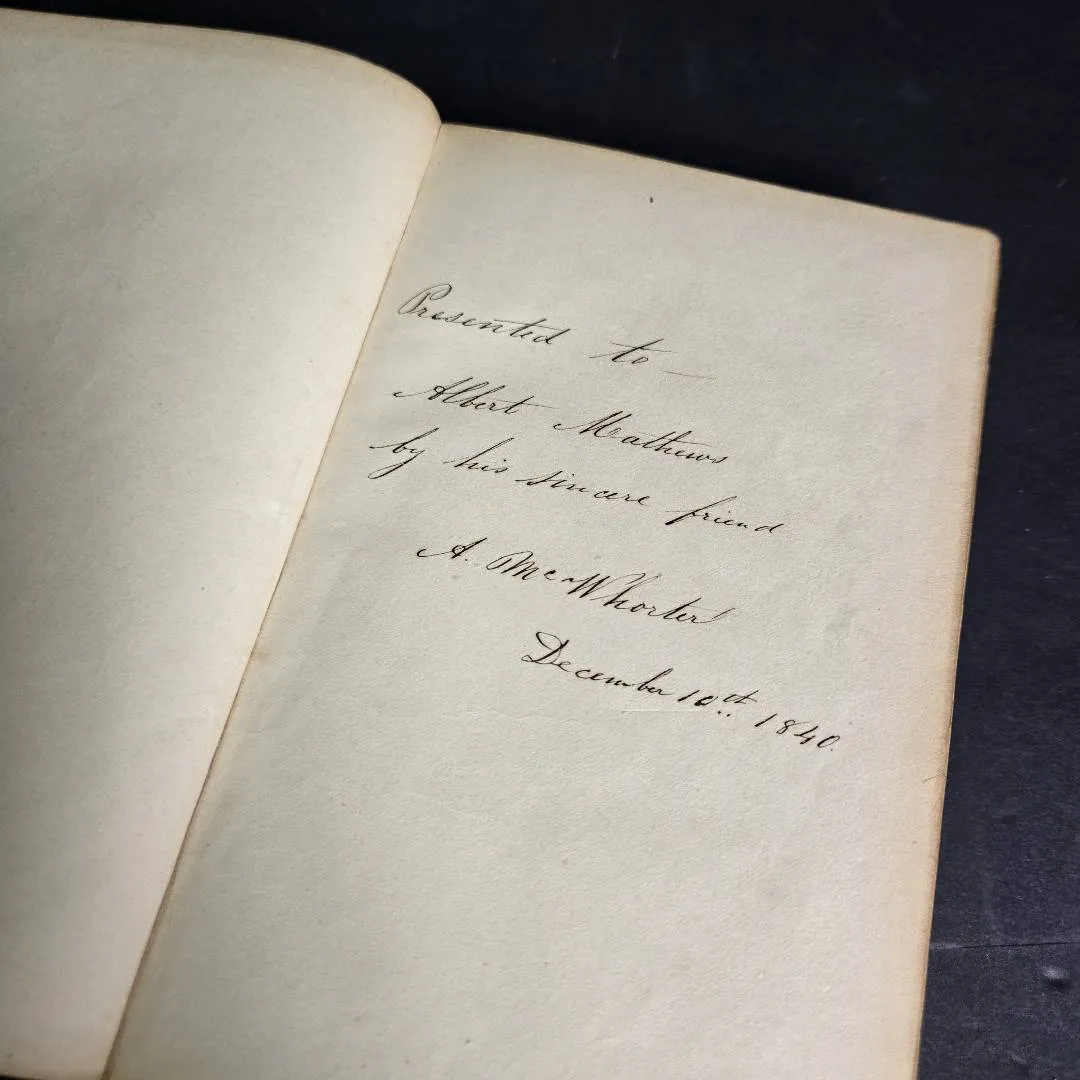 Presented to —
Albert Mathews
by his sincere friend
A. McWhorter
December 10th 1840.